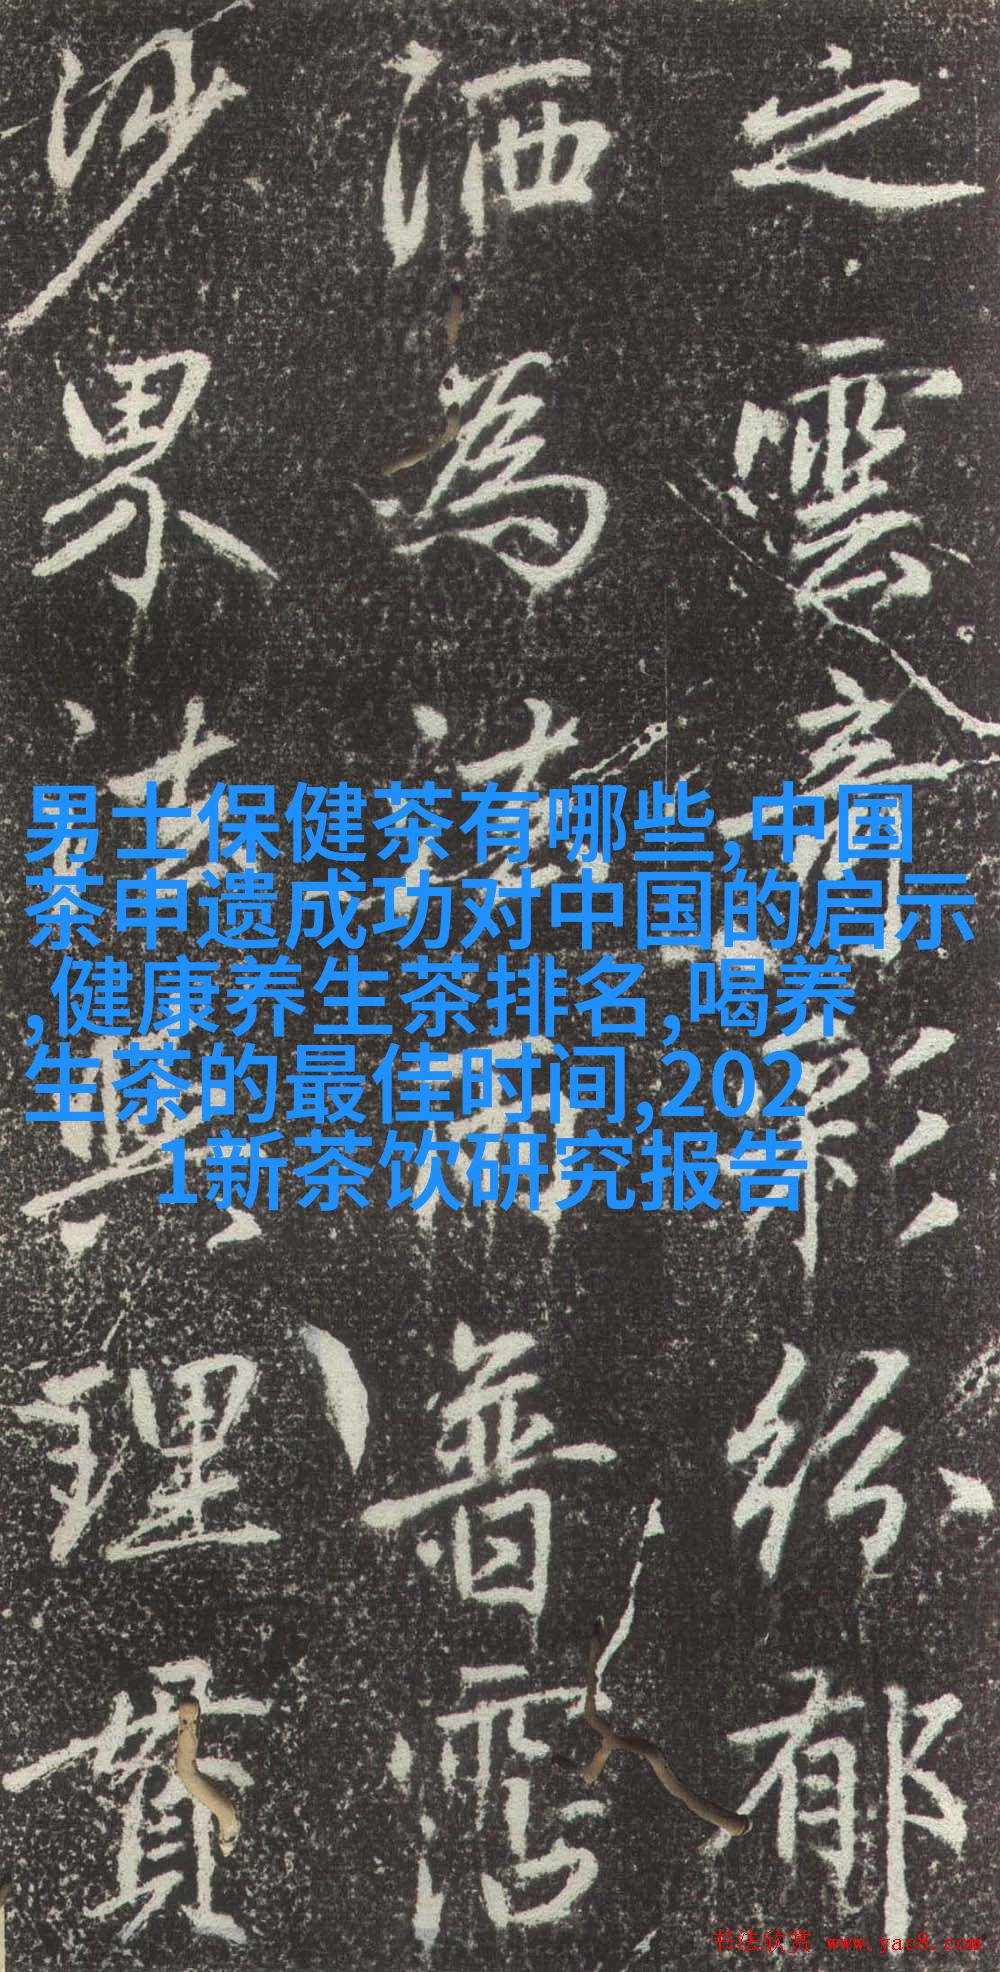 之雲紛郁
洒為法雨普霑
沙界理貫
男士保健茶有哪些,中国
茶申遗成功对中国的启示
,健康养生茶排名,喝养
生茶的最佳时间,202
1新茶饮研究报告
书法欣赏 www.yac8.com